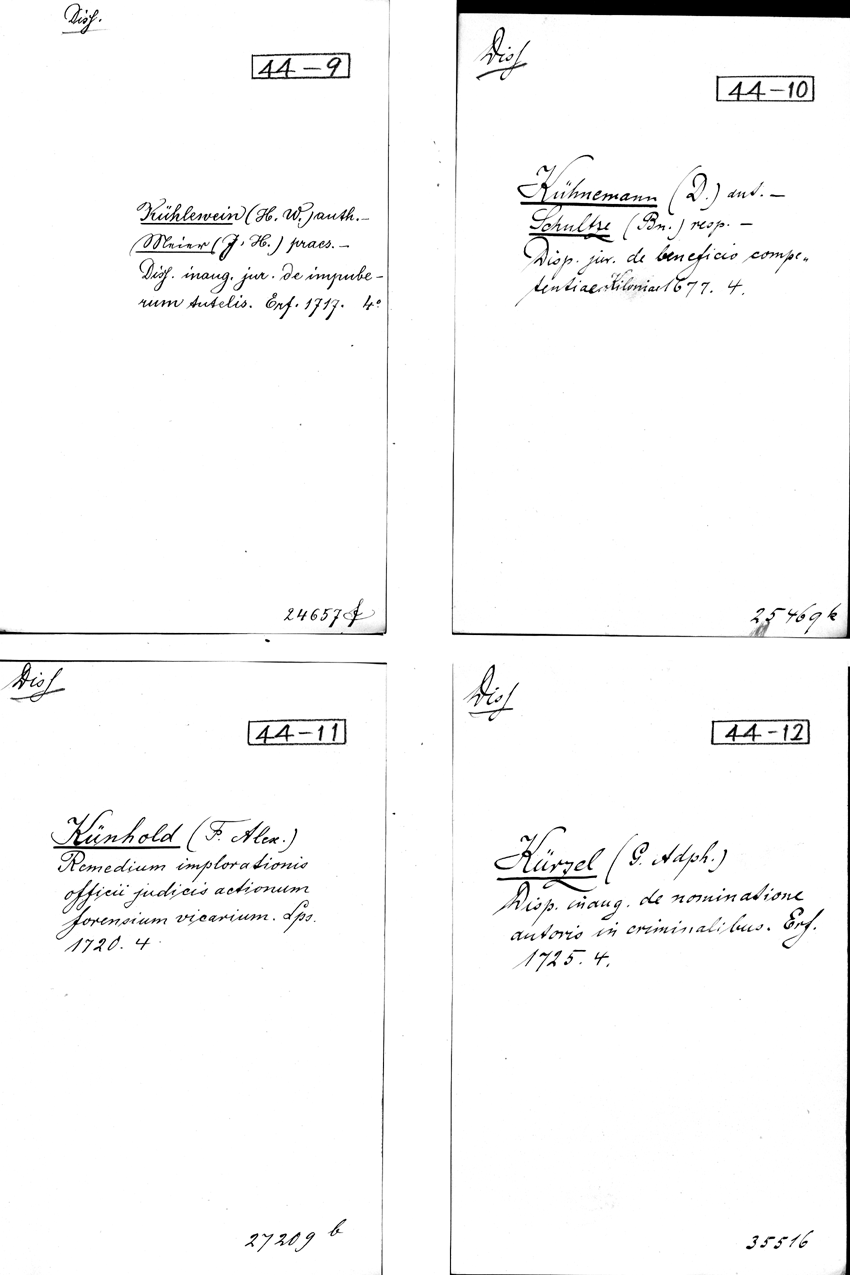 Diss.
44-9
Kühlewein (H. W.) auth. —
Meier (J. H.) praes. —
Diss. inaug. jur. de impube-
rum tutelis. Erf. 1717. 4°
24657 f
Diss
44-10
Kühnemann (D.) aut. —
Schultze (Bn.) resp. —
Disp. jur. de beneficio compe-
tentiae. Kiloniae 1677. 4.
25469 k
Diss
44-11
Künhold (F. Alex.)
Remedium implorationis
officii judicis actionum
forensium vicarium. Lps.
1720. 4
27209 b
Diss
44-12
Kürzel (G. Adph.)
Disp. inaug. de nominatione
autoris in criminalibus. Erf.
1725. 4.
35516